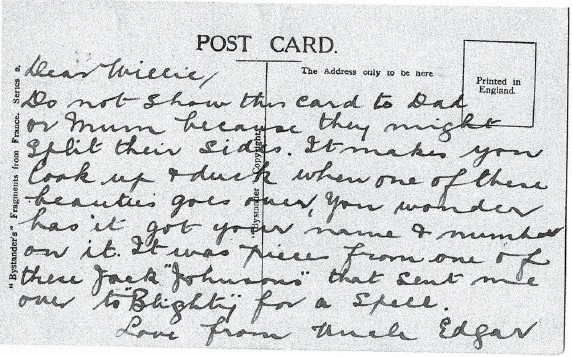 POST CARD.
The Address only to be here
Printed in
England.
"Bystander's" Fragments from France. Series 2.
"Bystander" Copyright.
Dear Willie,
Do not show this card to Dad
or Mum because they might
split their sides. It makes you
look up & duck when one of these
beauties goes over, You wonder
has it got your name & number
on it. It was pieces from one of
these Jack "Johnsons" that sent me
over to "Blighty," for a spell.
Love from Uncle Edgar